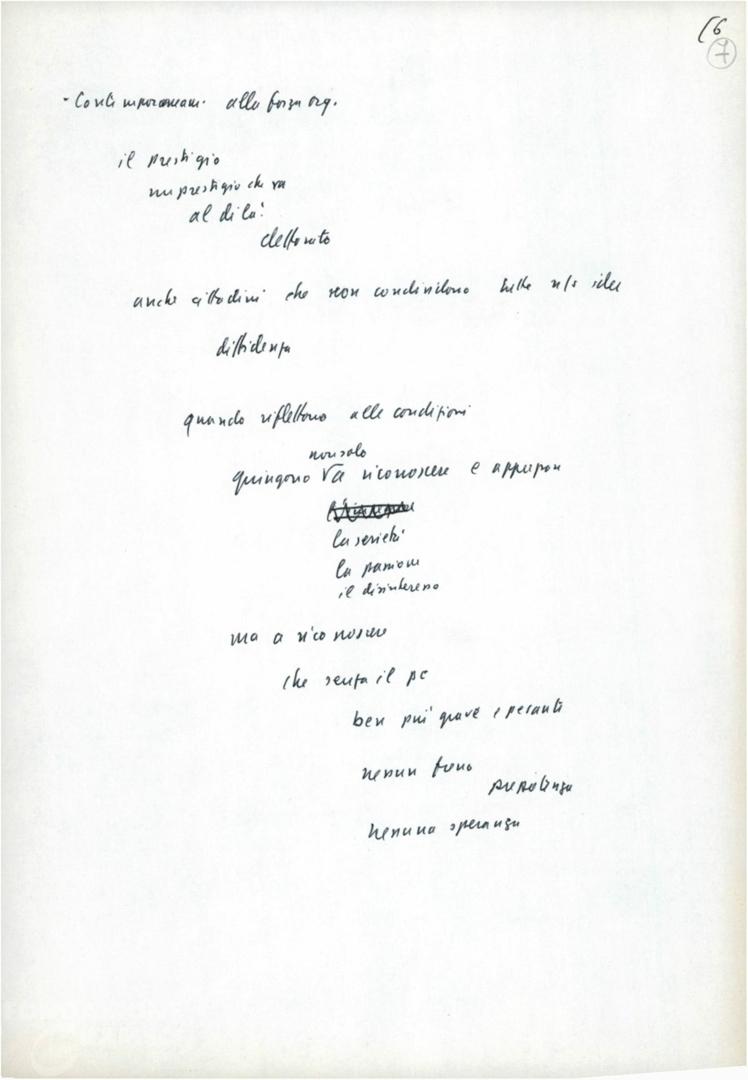 (6
7
- Contemporaneam. alla forza org.
il prestigio
un prestigio che va
al di là
del partito
anche cittadini che non condividono tutte n/s idee
diffidenza
quando riflettono alle condizioni
non solo
giungono √ a riconoscere e apprezzare
la serietà
la passione
il disinteresse
ma a riconoscere
che senza il pc
ben più gravi e pesanti
nessun freno
prepotenza
nessuna speranza